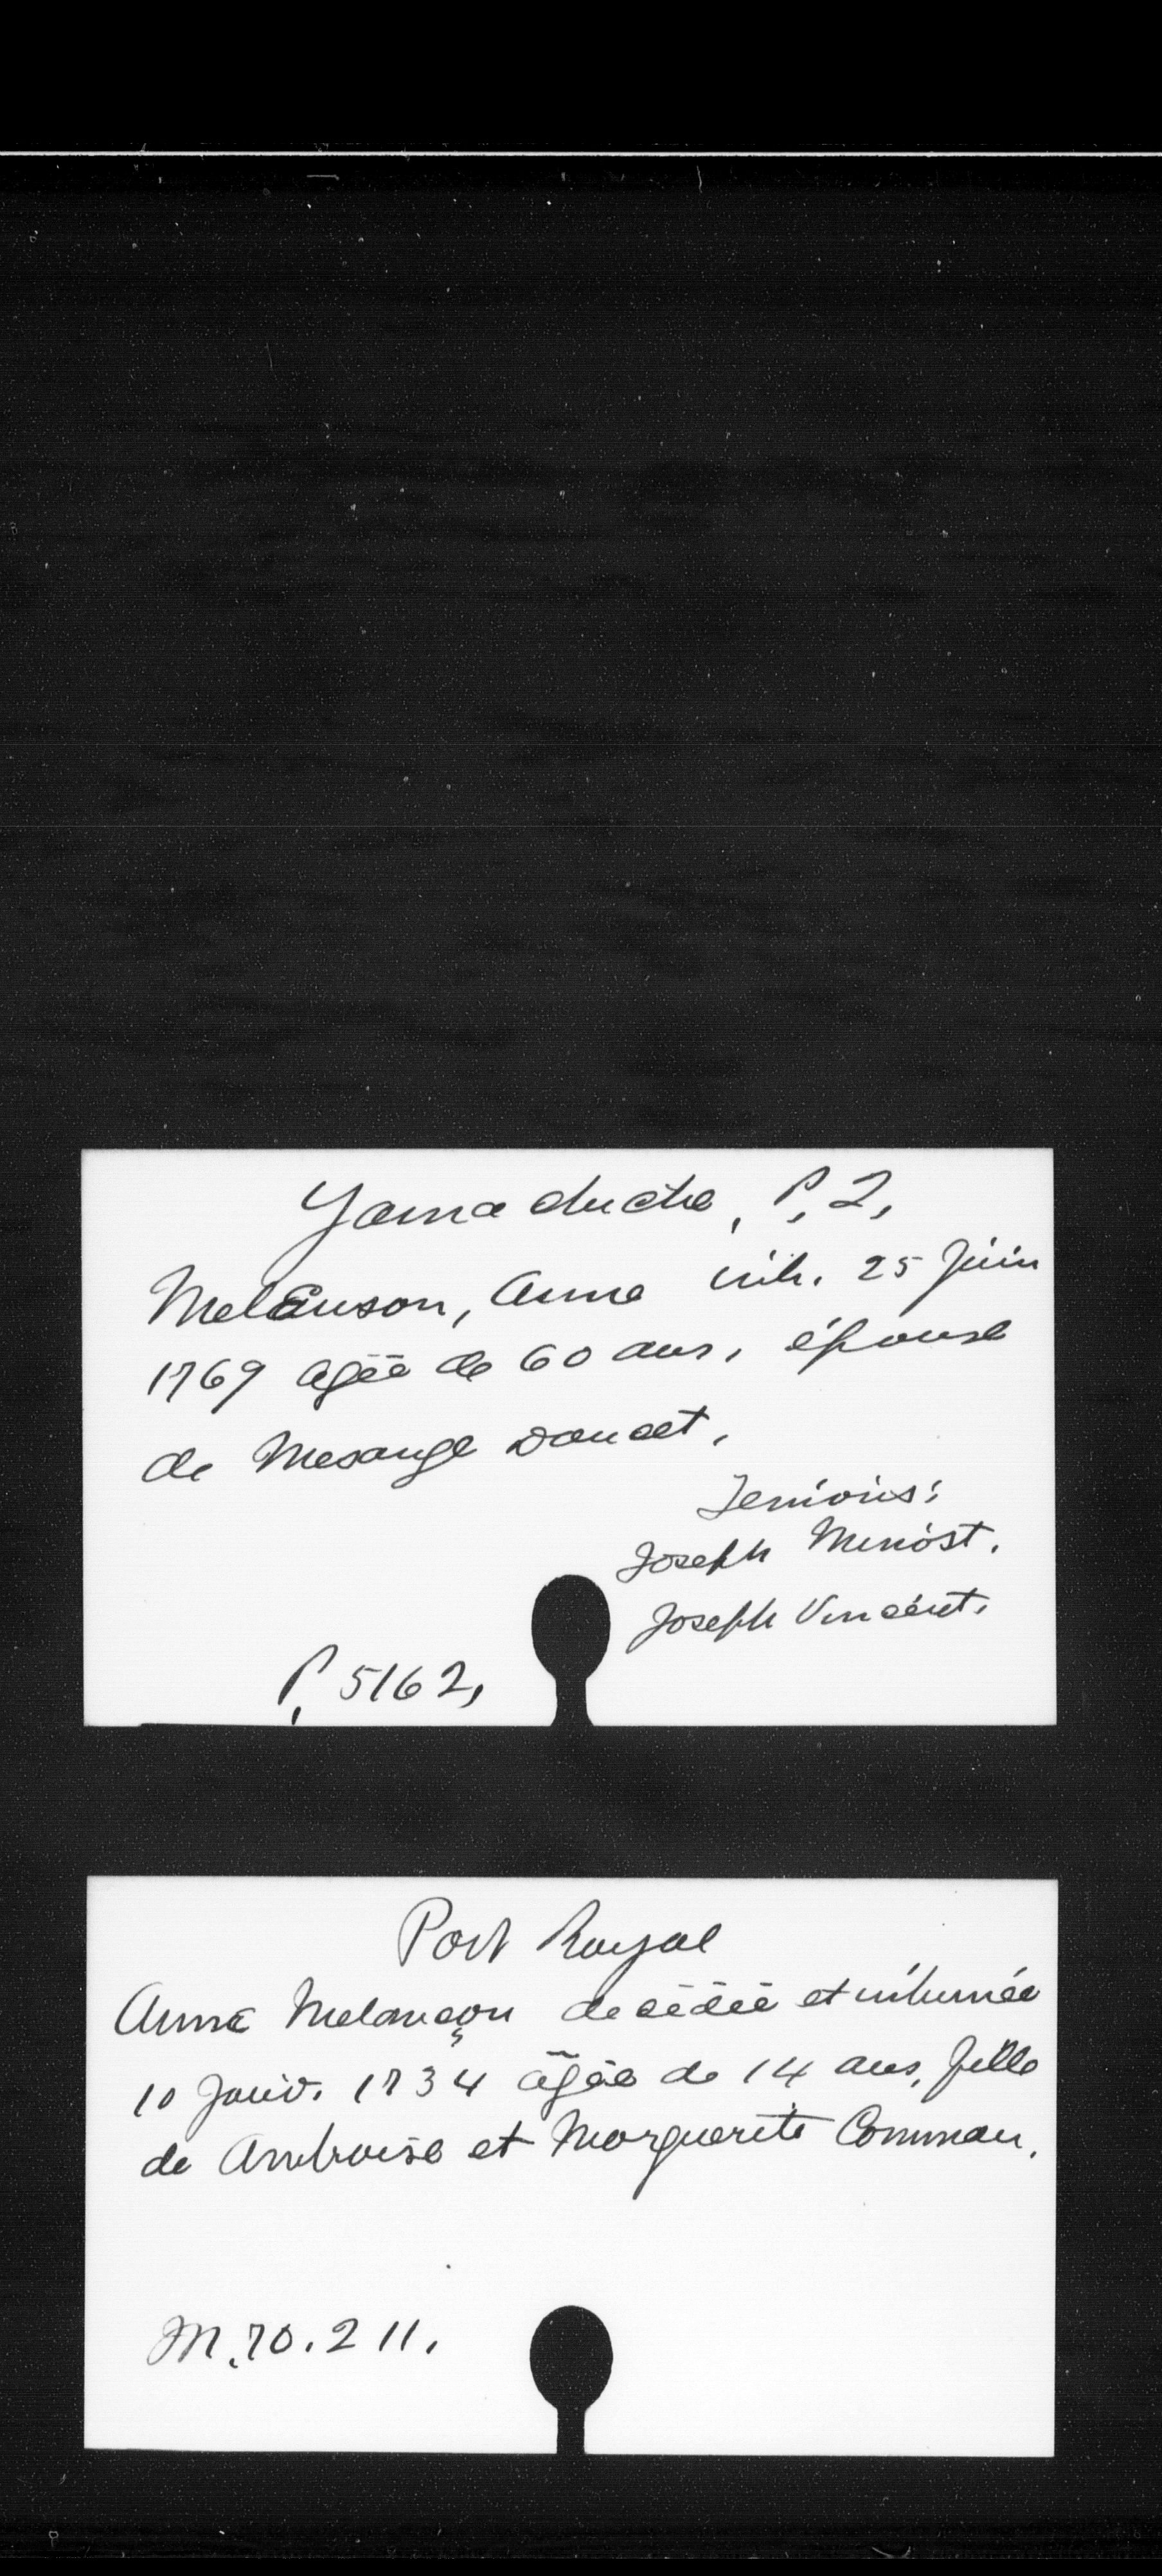 Yamachiche, P. 2,
Melanson, Anne inh. 25 Juin
1769 agée de 60 ans, épouse
de Mesange Doucet,
Témoins:
Joseph Miniost.
Joseph Vincent.
P. 5162,
Port Royal
Anne Melançon decédée et inhumée
10 Janv. 1734 âgée de 14 ans, fille
de Ambroise et Marguerite Commau.
M. 70. 211.